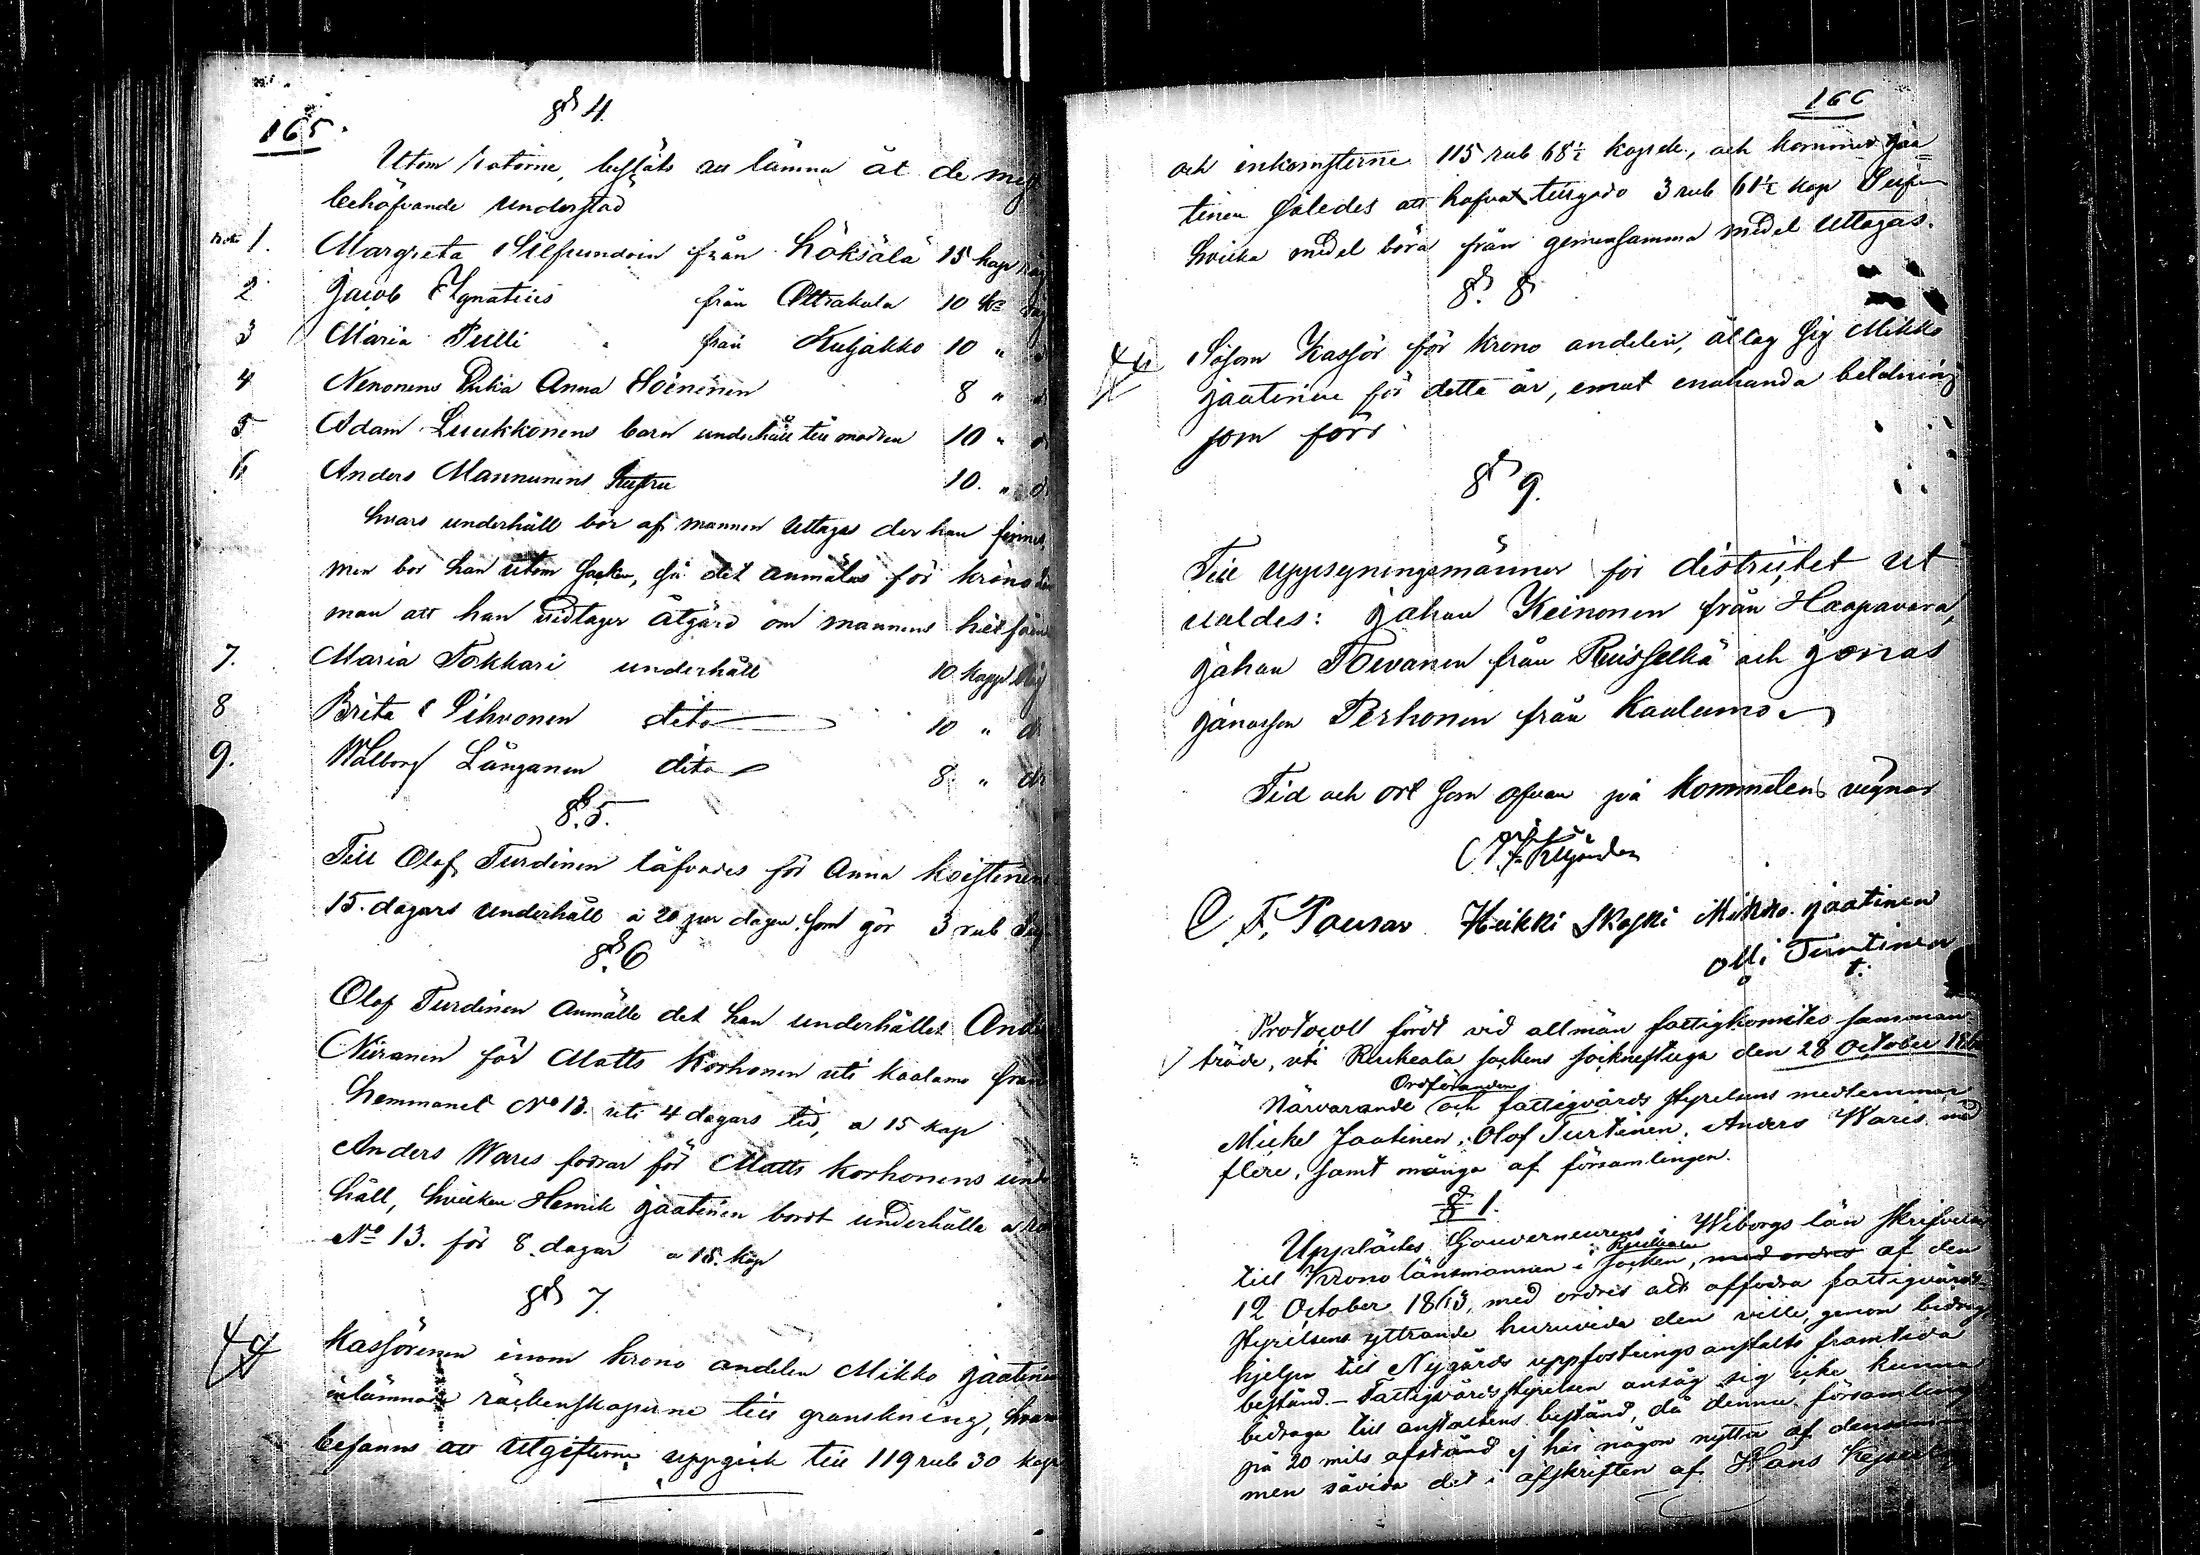 165.
§ 4.
Utom rotorne, beslöts att lämna åt de mest
behöfvande understöd
1. Margreta Silfvundoin från Höksälä 15 kap råg
2 Jacob Ignatius från Ottrakala 10 råg
3 Maria Pulli från Kuljakko 10 "
4 Nenonens Enkia Anna Soininen 8 "
5 Adam Luukkonens barn underhåll till modren 10 "
6 Anders Mannunens hustru 10. "
hvars underhåll bör af mannen uttagas der han finnes,
men bor han utom Socken, så det anmälas för krono
man att han vidtager åtgärd om mannens hit
7. Maria Tokkari underhåll 10 kappe
8 Brita Pihvonen dito 10 "
9. Walborg Långanen dito 8 "
§. 5.
Till Olof Turdinen läfvades för Anna Koistinens
15. dagars underhåll a 20 per dagen, som gör 3 rub
§. 6
Olof Turdinen anmälte det han underhållet
Niiranen för Matts Korhonen uti Kaalamo från
hemmanet No 13. uti 4 dagars tid, a 15 kap
Anders Wares fodrar för Matts Korhonens under
håll, hvilken Henrik Jaatinen bordt underhålla
No 13. för 8. dagar a 15. kop
§ 7
Kassörenen inom krono andelen Mikko Jaatinen
inlämnade räckenskaperne till granskning, hvar
befanns att utgifterne uppgick till 119 rub 30 kop
166
och inkomsterne 115 rub 68½ kop, och kommer Jaa=
tinen således att hafva tillgodo 3 rub 61½ kop
hvilka medel böra från gemensamma medel uttagas.
§. 8
Såsom Kassör för krono andelen, åtlog sig Mikko
Jaatinen för detta år, emot enahanda belöning
som förr
§ 9.
Till uppsyningsmänner för districtet ut
valdes: Johan Keinonen från Haapavara,
Johan Toivanen från Ruisselkä och Jonas
Jonasson Perhonen från Kaalamo
Tid och ort som ofvan på kommitens vägnar
C F. Pousar Heikki Mikko Jaatinen
olli Turtinen
Protocoll fördt vid allmän fattigkomites samman=
träde, uti Ruskeala sockens sockenstuga den 28 October
Närvarande Ordföranden och fattigvårds styrelsens medlemmar
Mickel Jaatinen, Olof Turtinen, Anders Waris, med
flere, samt många af församlingen.
§ 1.
Upplästes Gouverneurens i Wiborgs län skrifvelse
till Kronolänsmannen i Ruskeala socken, med ordres af den
12 October 1863, med ordres att affodra fattigvårds=
styrelsens yttrande huruvida den ville genom bidrag
hjelpa till Nygårds uppfostrings anstalts framtida
bestånd. – Fattigvårdsstyrelsen ansåg sig icke kunna
bidraga till anstaltens bestånd, då denna församling
på 20 mils afstånd ej har någon nytta af densamma
men såvida det i afskriften af Hans